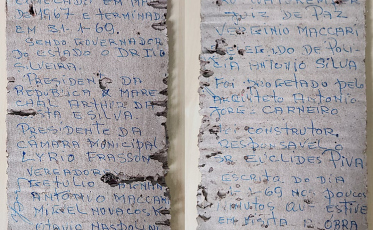 DE 1967 E TERMINADA
EM 31.1.69.
SENDO GOVERNADOR
DE ESTADO O DR IVO
SILVEIRA.
PRESIDENTE DA
REPÚBLICA O MARE-
CHAL ARTHUR DA
COSTA E SILVA.
PRESIDENTE DA
CÂMARA MUNICIPAL
LYRIO FRASSON
VEREADOR
GETULIO
ANTONIO MACCARI
MIGUEL NOVACOSKI
JUIZ DE PAZ
VERGINIO MACCARI
ANTONIO SILVA
FOI PROJETADO PELO
ARQUITETO ANTONIO
CARNEIRO
CONSTRUTOR.
RESPONSÁVEL O
EUCLIDES PIVA
ESCRITA DO DIA
69 NOS POUCOS
MINUTOS QUE ESTIVE
EM VISTA A OBRA